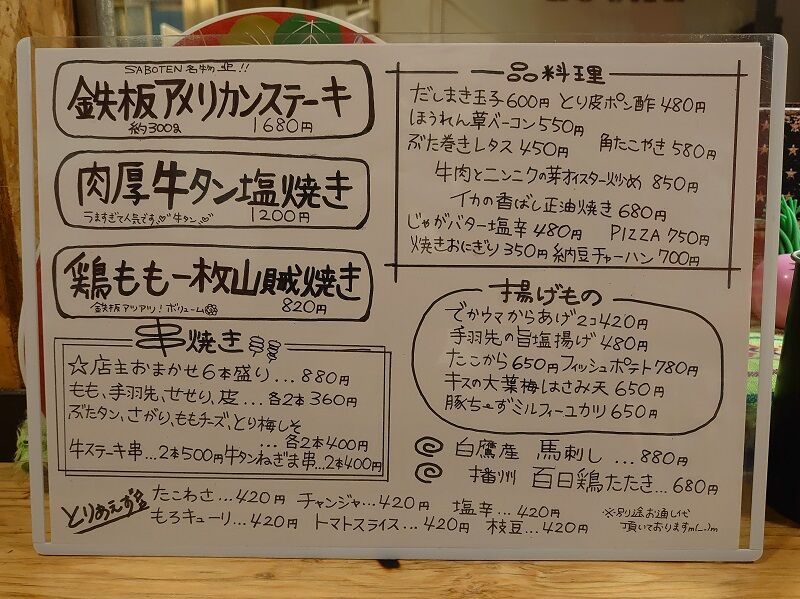 SABOTEN名物
鉄板アメリカンステーキ
約300g 1680円
肉厚牛タン塩焼き
うますぎて人気です "牛タン"
1200円
鶏もも一枚山賊焼き
鉄板アツアツ!ボリューム 820円
串焼き
☆店主おまかせ6本盛り...880円
もも、手羽先、せせり、皮...各2本360円
ぶたタン、さがり、ももチーズ、とり梅しそ
...各2本400円
牛ステーキ串...2本500円 牛タンねぎま串...2本400円
一品料理
だしまき玉子600円 とり皮ポン酢480円
ほうれん草ベーコン550円
ぶた巻きレタス450円 角たこやき580円
牛肉とニンニクの芽オイスター炒め850円
イカの香ばし正油焼き680円
じゃがバター塩辛480円 PIZZA750円
焼きおにぎり350円 納豆チャーハン700円
揚げもの
でかウマからあげ2コ420円
手羽先の旨塩揚げ480円
たこから650円 フィッシュポテト780円
キスの大葉梅はさみ天650円
豚ちーずミルフィーユカツ650円
白鷹産 馬刺し...880円
播州 百日鶏たたき...680円
とりあえず
たこわさ...420円 チャンジャ...420円 塩辛...420円
もろキューリ...420円 トマトスライス...420円 枝豆...420円
※別途お通し代
頂いておりますm(_ _)m